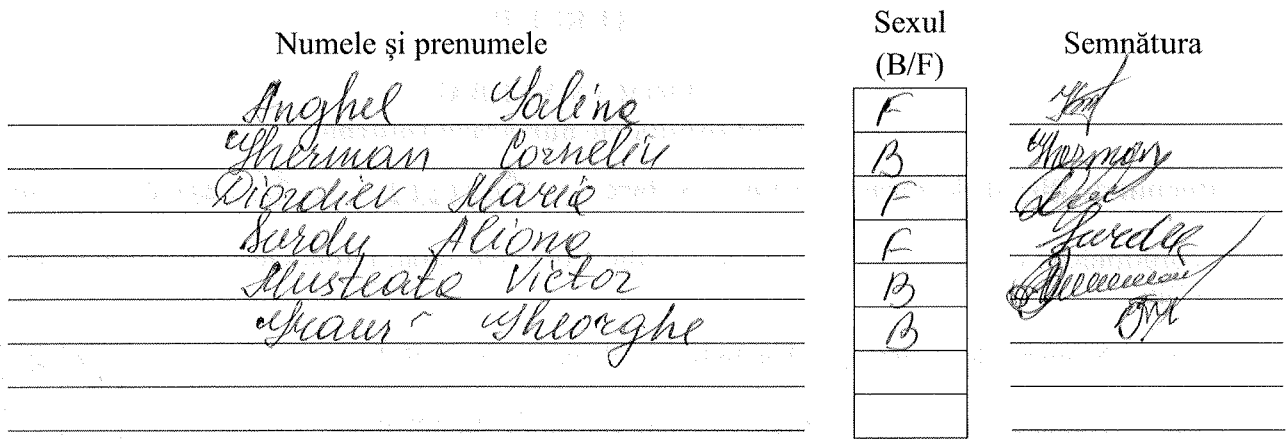 Numele și prenumele Sexul (B/F) Semnătura
Anghel Galina F
Gherman Corneliu B Gherman
Diordiev Maria F
Surdu Aliona F Surdu
Musteata Victor B
Gheorghe B